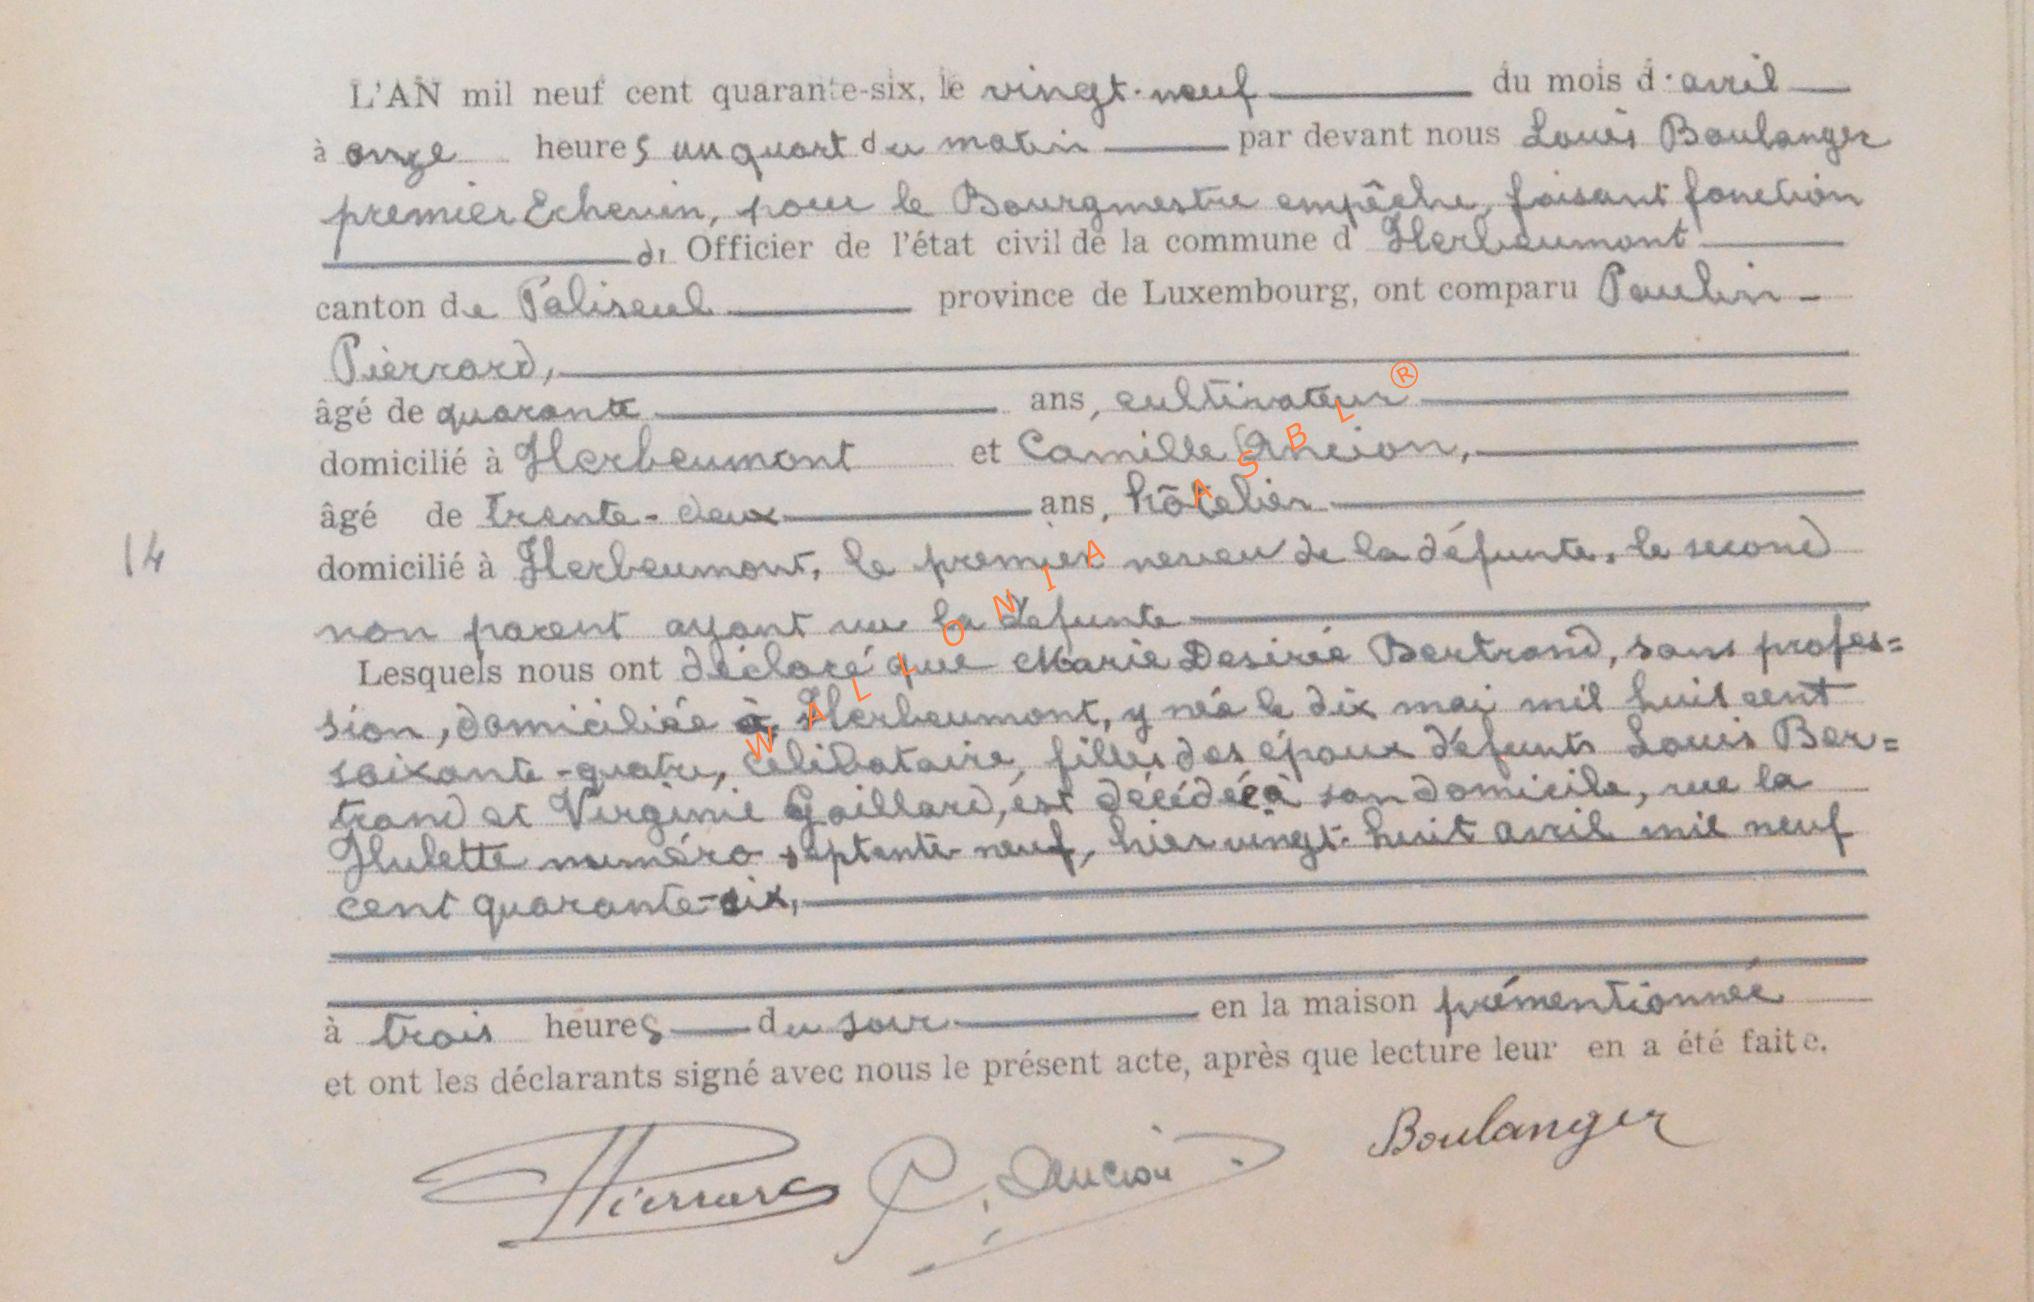 L'AN mil neuf cent quarante-six, le vingt-neuf du mois d'avril
à onze heures un quart du matin par devant nous Louis Boulanger
premier Echevin, pour le Bourgmestre empêché, faisant fonction
d' Officier de l'état civil de la commune d' Herbeumont
canton de Paliseul province de Luxembourg, ont comparu Paulin
Pierrard,
âgé de quarante ans, cultivateur
domicilié à Herbeumont et Camille Ancion,
âgé de trente-deux ans, hôtelier
14
domicilié à Herbeumont, le premier neveu de la défunte, le second
non parent ayant vu la défunte
Lesquels nous ont déclaré que Marie Desirée Bertrand, sans profes=
sion, domiciliée à Herbeumont, y née le dix mai mil huit cent
soixante-quatre, célibataire, fille des époux défunts Louis Ber=
trand et Virginie Gaillard, est décédée à son domicile, rue la
Hulette numéro septante-neuf, hier vingt-huit avril mil neuf
cent quarante-six,
à trois heures du soir en la maison prémentionnée
et ont les déclarants signé avec nous le présent acte, après que lecture leur en a été faite.
Pierrard C. Ancion Boulanger
WALLONIA ASBL ®